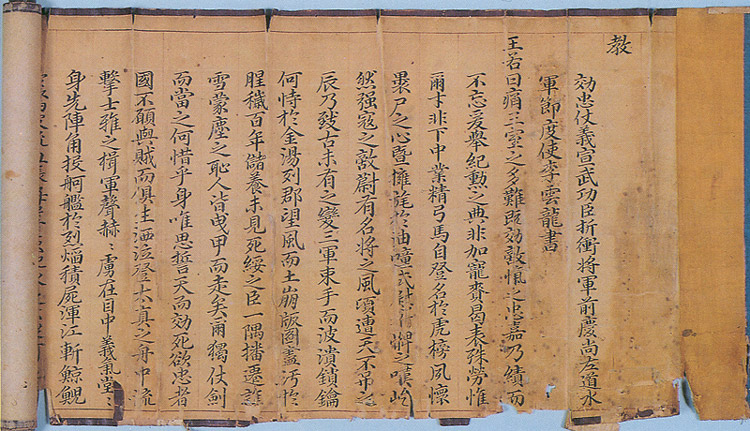 教
効忠仗義宣武功臣折衝將軍前慶尚左道水
軍節度使李雲龍書
王若曰痛王室之多難旣効敵愾之忠嘉乃績而
不忘爰擧紀勳之典非加寵賚曷表殊勞惟
爾才非下中業精弓馬自登名於虎榜夙懷
褁尸之心曁擁旄於油幢式將之屹
然强寇之敵蔚有名將之風頃遭天不吊之
辰乃致古未有之變三軍束手而波潰鎖鑰
何恃於金湯列郡望風而土崩版圖盡汚於
腥穢百年儲養未見死綏之臣一隅播遷誰
雪蒙塵之恥人皆曳甲而走矣爾獨仗劍
而當之何惜乎身唯思誓天而効死欲忠者
國不願與賊而俱生洒泣登太真之舟中流
擊士雅之楫軍聲赫〻虜在目中義氣堂〻
身先陣角舸艦於烈焰積屍渾江斬鯨鯢